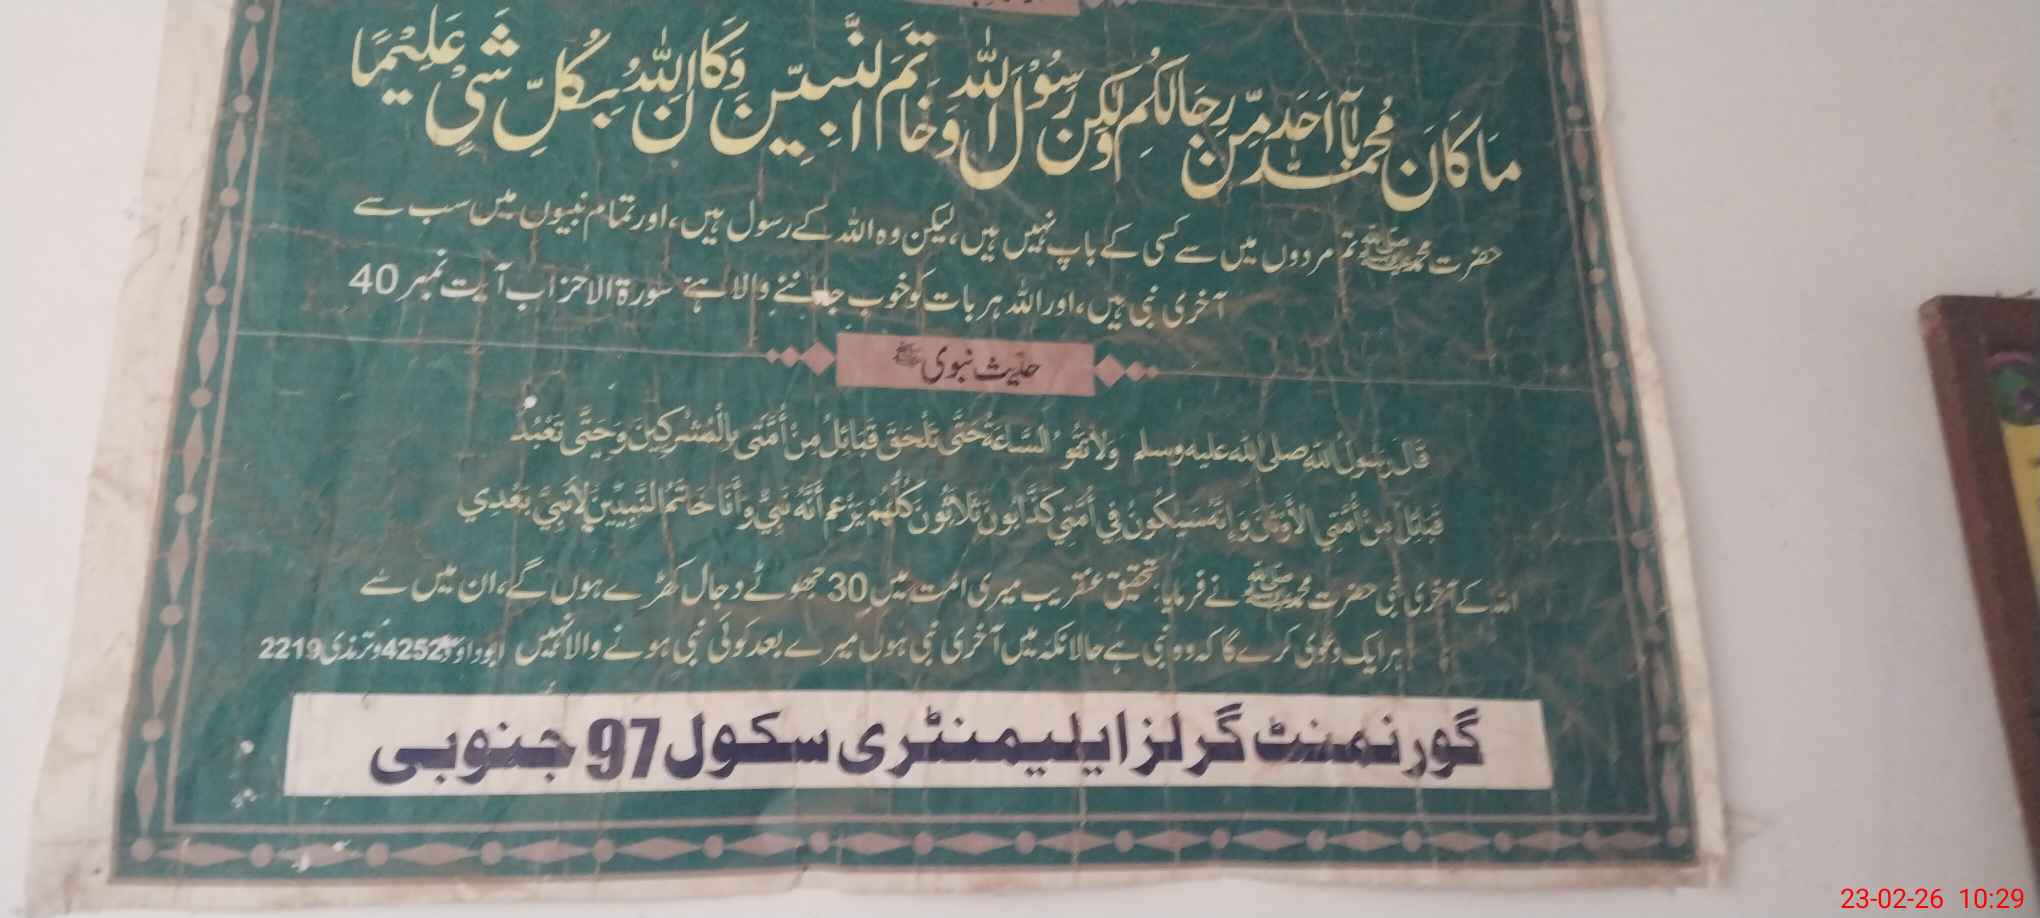 مَا كَانَ مُحَمَّدٌ اَبَآ اَحَدٍ مِّنْ رِّجَالِكُمْ وَلٰكِنْ رَّسُوْلَ اللّٰهِ وَخَاتَمَ النَّبِيّٖنَ وَكَانَ اللّٰهُ بِكُلِّ شَيْءٍ عَلِيْمًا
حضرت محمد ﷺ تم مردوں میں سے کسی کے باپ نہیں ہیں، لیکن وہ اللہ کے رسول ہیں، اور تمام نبیوں میں سب سے
آخری نبی ہیں، اور اللہ ہر بات کو خوب جاننے والا ہے سورۃ الاحزاب آیت نمبر 40
حدیث نبوی ﷺ
قَالَ رَسُولُ اللهِ صلى الله عليه وسلم وَلَا تَقُومُ السَّاعَةُ حَتَّى تَلْحَقَ قَبَائِلُ مِنْ أُمَّتِي بِالْمُشْرِكِينَ وَحَتَّى تَعْبُدَ
قَبَائِلُ مِنْ أُمَّتِي الأَوْثَانَ وَإِنَّهُ سَيَكُونُ فِي أُمَّتِي كَذَّابُونَ ثَلَاثُونَ كُلُّهُمْ يَزْعُمُ أَنَّهُ نَبِيٌّ وَأَنَا خَاتَمُ النَّبِيِّينَ لَا نَبِيَّ بَعْدِي
اللہ کے آخری نبی حضرت محمد ﷺ نے فرمایا: تحقیق عنقریب میری امت میں 30 جھوٹے دجال کھڑے ہوں گے، ان میں سے
ہر ایک دعویٰ کرے گا کہ وہ نبی ہے حالانکہ میں آخری نبی ہوں میرے بعد کوئی نبی ہونے والا نہیں ابوداؤد 4252 و ترمذی 2219
گورنمنٹ گرلز ایلیمنٹری سکول 97 جنوبی
23-02-26 10:29